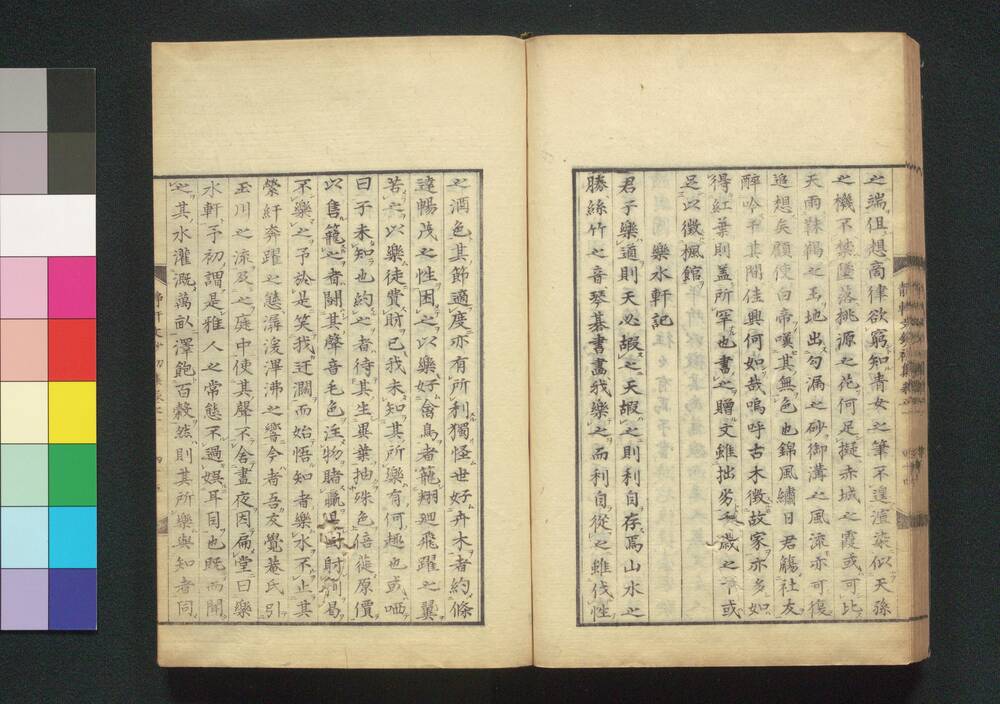 之端但想商律欲窮知青女之筆不遑渲染似天孫
之機不禁墜落桃源之花何足擬赤城之霞或可比
天雨靺鞨之玉地出勾漏之砂御溝之風流亦可復
追想矣顧使白帝嘆其無色也錦風繡日君觴社友
醉吟于其閒佳興何如哉嗚呼古木徴故家亦多如
得紅葉則蓋所罕也書之贈文雖拙劣千歲之下或
足以徴楓館
樂水軒記
君子樂適則天必嘏之天嘏之則利自存焉山水之
勝絲竹之音琴棊書畫我樂之而利自從之雖伐性
之酒色其節適度亦有所利獨怪世好卉木者約條
達暢茂之性困之以樂好禽鳥者籠翔廻飛躍之翼
苦之以樂徒費財已我未知其所樂有何趣也或哂
曰子未知也約之者待其生異葉抽殊色倍蓰原價
以售籠之者鬪其聲音毛色注物賭贏且財
不樂之予於是笑我迂濶而始悟知者樂水不止其
縈紆奔躍之態潺湲滭沸之響今者吾友覺菴氏引
玉川之流及之庭中使其聲不舍晝夜因扁堂曰樂
水軒予初謂是雅人之常態不過娯耳目也既而聞
之其水灌溉萬畝澤飽百穀然則其所樂與知者同